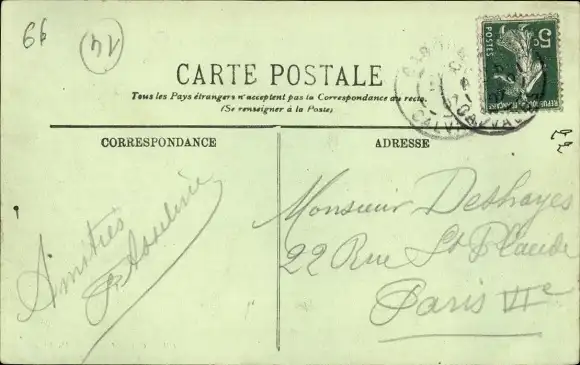 66
14
CARTE POSTALE
Tous les Pays étrangers n'acceptent pas la Correspondance au recto.
(Se renseigner à la Poste)
5c
POSTES
REPUBLIQUE FRANÇAISE
CALVADOS
CORRESPONDANCE
ADRESSE
Amitiés
Monsieur Deshayes
22 Rue St Placide
Paris VIe